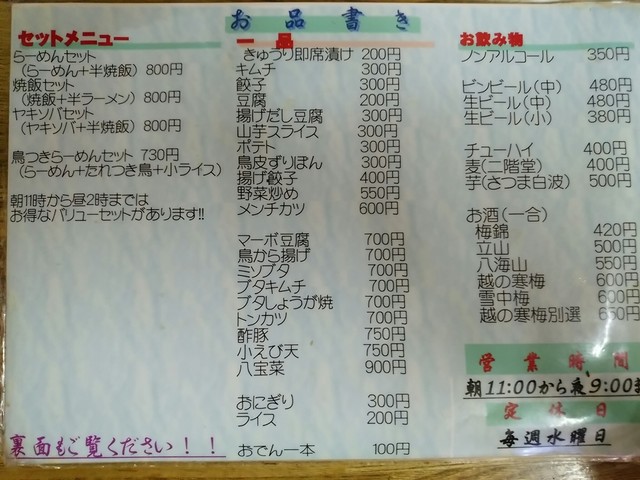 お品書き
セットメニュー
らーめんセット
(らーめん+半焼飯) 800円
焼飯セット
(焼飯+半ラーメン) 800円
ヤキソバセット
(ヤキソバ+半焼飯) 800円
鳥つきらーめんセット 730円
(らーめん+たれつき鳥+小ライス)
朝11時から昼2時までは
お得なバリューセットがあります!!
裏面もご覧ください!!
一品
きゅうり即席漬け 200円
キムチ 300円
餃子 300円
豆腐 200円
揚げだし豆腐 300円
山芋スライス 300円
ポテト 300円
鳥皮ずりぽん 300円
揚げ餃子 400円
野菜炒め 550円
メンチカツ 600円
マーボ豆腐 700円
鳥から揚げ 700円
ミソブタ 700円
ブタキムチ 700円
ブタしょうが焼 700円
トンカツ 700円
酢豚 750円
小えび天 750円
八宝菜 900円
おにぎり 300円
ライス 200円
おでん一本 100円
お飲み物
ノンアルコール 350円
ビンビール(中) 480円
生ビール(中) 480円
生ビール(小) 380円
チューハイ 400円
麦(二階堂) 400円
芋(さつま白波) 500円
お酒(一合)
梅錦 420円
立山 500円
八海山 550円
越の寒梅 600円
雪中梅 600円
越の寒梅別選 650円
営業時間
朝11:00から夜9:00
定休日
毎週水曜日